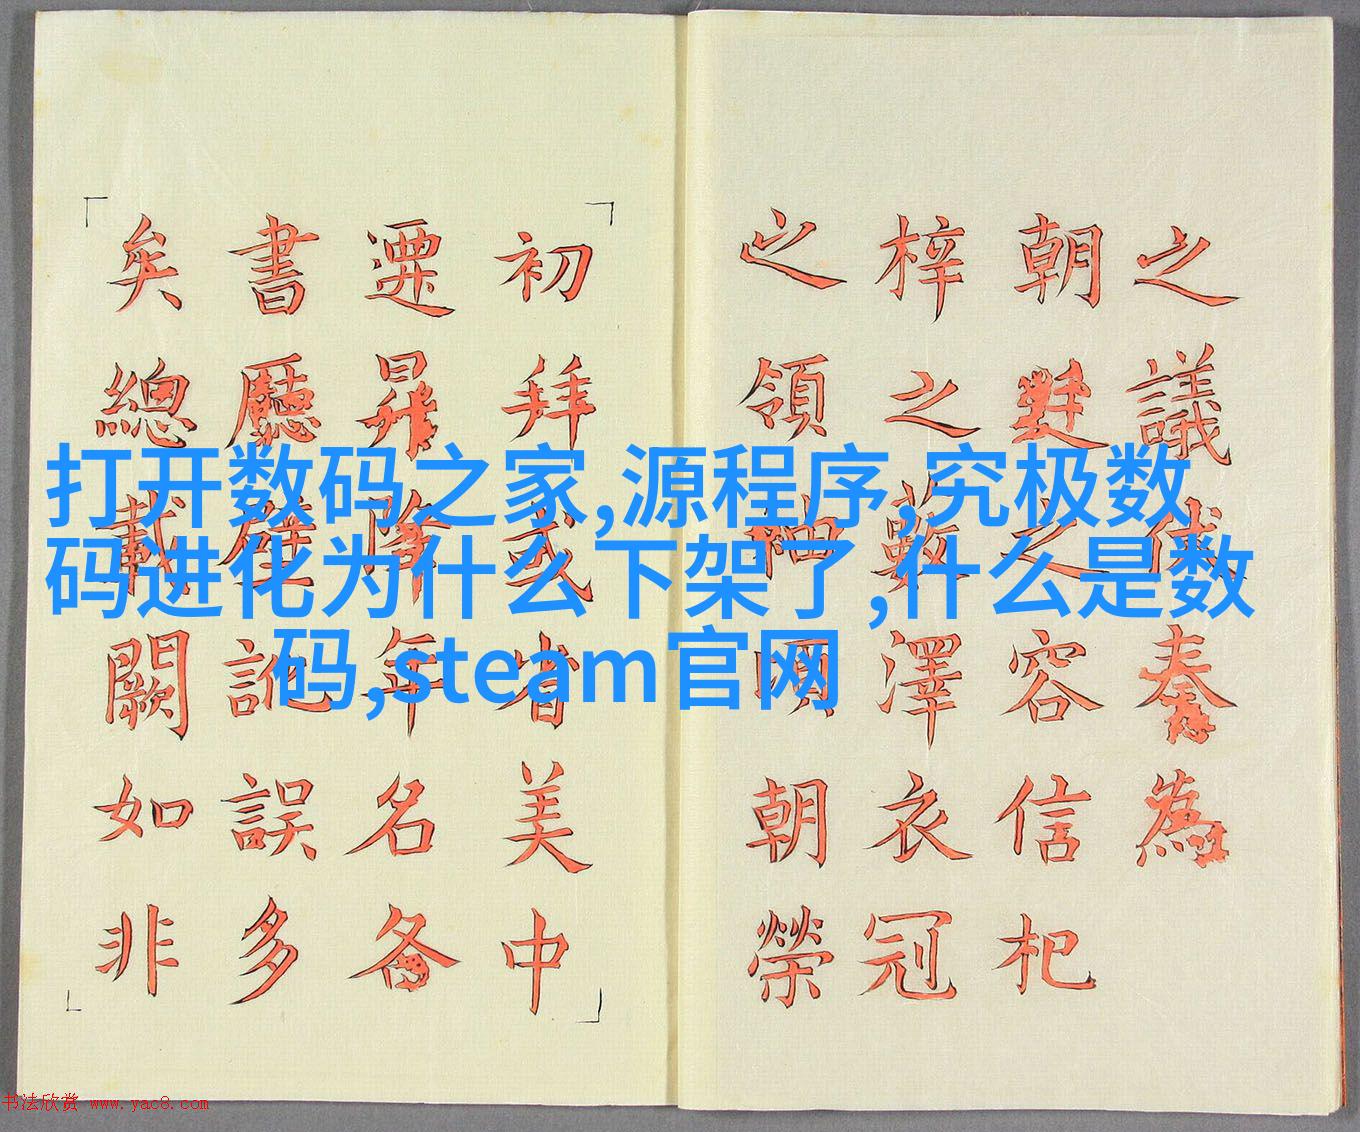 之議伏奏為
朝對之容信杞
梓之藪澤衣冠
之領袖頃朝榮
初拜或省美中
遷昇降年名各
書廳壁訛誤多
矣總載闕如非
打开数码之家,源程序,究极数
码进化为什么下架了,什么是数
码,steam官网
书法欣赏 www.yac8.com